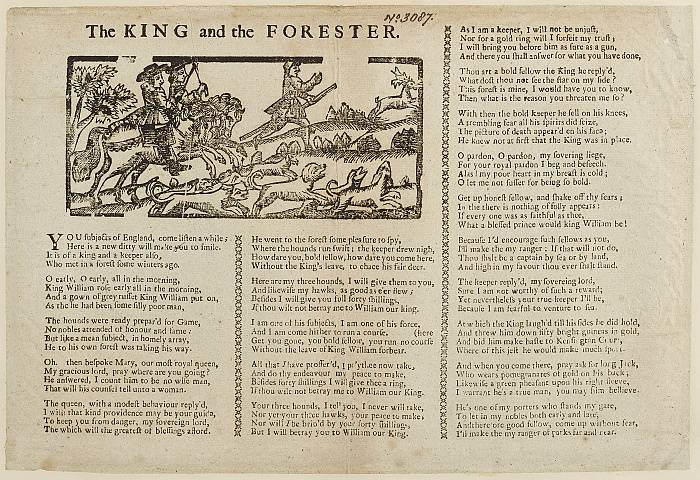 No. 3087.
The KING and the FORESTER.
YOU subjects of England, come listen a while;
Here is a new ditty will make you to smile.
It is of a king and a keeper also,
Who met in a forest some winters ago.
O early, O early, all in the morning,
King William rose early all in the morning,
And a gown of grey russet King William put on,
As tho he had been some silly poor man,
The hounds were ready prepar'd for Game,
No nobles attended of honour and fame;
But like a mean subject, in homely array,
He to his own forest was taking his way.
Oh. then bespoke Mary, our most royal queen,
My gracious lord, pray where are you going?
He answered, I count him to be no wise man,
That will his counsel tell unto a woman.
The queen, with a modest behaviour reply'd,
I wish that kind providence may be your guide,
To keep you from danger, my sovereign lord,
The which will the greatest of blessings afford.
He went to the forest some pleasure to spy,
Where the hounds run swift; the keeper drew nigh,
How dare you, bold fellow, how dare you come here,
Without the King's leave, to chace his fair deer.
Here are my three hounds, I will give them to you,
And likewise my hawks, as good as e'er flew;
Besides I will give you full forty shillings,
If thou wilt not betray me to William our king.
I am one of his subjects, I am one of his force,
And I am come hither to run a course. (here
Get you gone, you bold fellow, you run no course
Without the leave of King William forbear.
All that I have proffer'd, I pr'ythee now take,
And do thy endeavour my peace to make,
Besides forty shillings I will give thee a ring,
If thou wilt not betray me to William our King.
Your three hounds, I tell you, I never will take,
Nor yet your three hawks, your peace to make;
Nor will I be brib'd by your forty shillings,
But I will betray you to William our King.
As I am a keeper, I will not be unjust,
Nor for a gold ring will I forfeit my trust;
I will bring you before him as sure as a gun,
And there you shall answer for what you have done,
Thou art a bold fellow the King he reply'd,
What dost thou not see the star on my side?
This forest is mine, I would have you to know,
Then what is the reason you threaten me so?
With then the bold keeper he fell on his knees,
A trembling fear all his spirits did seize,
The picture of death appear'd on his face;
He knew not at first that the King was in place.
O pardon, O pardon, my sovering liege,
For your royal pardon I beg and beseech.
Alas! my poor heart in my breast is cold;
O let me not suffer for being so bold.
Get up honest fellow, and shake off thy fears;
In the there is nothing of folly appears:
If every one was as faithful as thee,
What a blessed prince would king William be!
Because I'd encourage such fellows as you,
I'll make the my ranger: if that will not do,
Thou shalt be a captain by sea or by land,
And high in my favour thou ever shalt stand.
The keeper reply'd, my sovereing lord,
Sure I am not worthy of such a reward;
Yet nevertheless your true keeper I'll be,
Because I am fearful to venture to sea.
At which the King laugh'd till his sides he did hold,
And threw him down fifty bright guineas in gold,
And bid him make haste to Kensington Court,
Where of this jest he would make much sport.
And when you come there, pray ask for long Jack,
Who wears pomegranates of gold on his back;
Likewise a green pheasant upon his right sleeve,
I warrant he's a true man, you may him believe.
He's one of my porters who stands my gate,
To let in my nobles both early and late;
And therefore good fellow, come up without fear,
I'll make the my ranger of parks far and near.